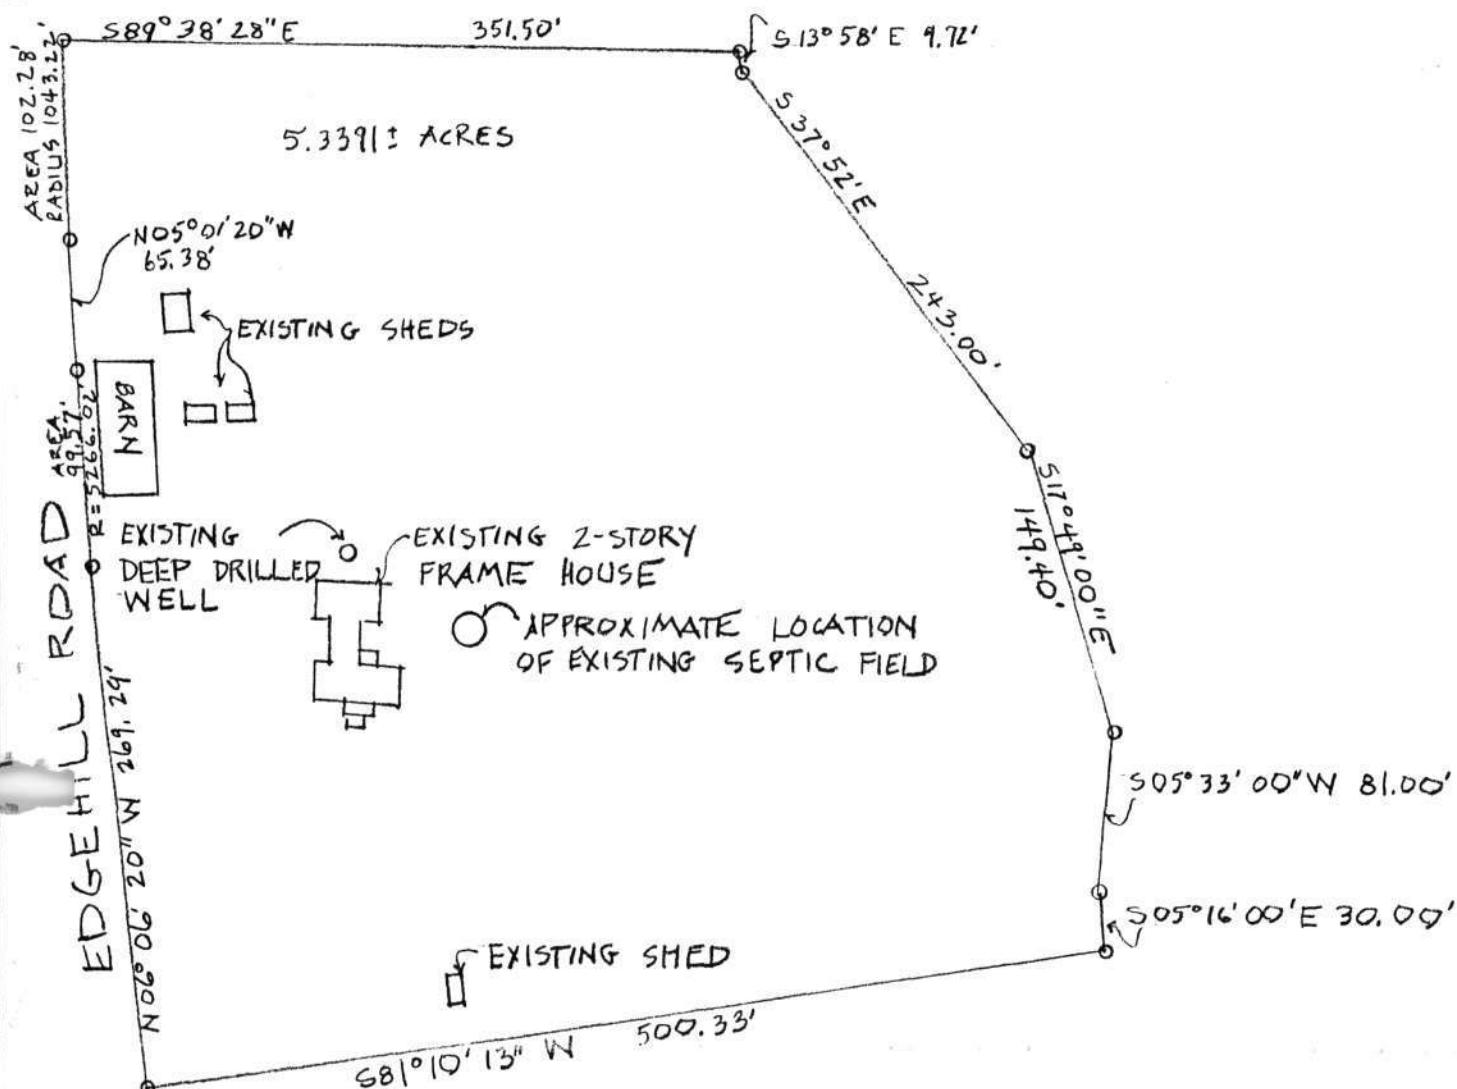 S89° 38' 28" E 351.50'
S 13° 58' E 9.72'
AREA 102.28'
RADIUS 1043.22'
5.3391± ACRES
S 37° 52' E
243.00'
N05° 01' 20" W
65.38'
EXISTING SHEDS
BARN
AREA
99.57'
R=5266.02'
S17° 49' 00" E
149.40'
EXISTING
DEEP DRILLED
WELL
EXISTING 2-STORY
FRAME HOUSE
APPROXIMATE LOCATION
OF EXISTING SEPTIC FIELD
EDGEHILL ROAD
N06° 06' 20" W 269.29'
S05° 33' 00" W 81.00'
S05° 16' 00' E 30.00'
EXISTING SHED
S81° 10' 13" W 500.33'